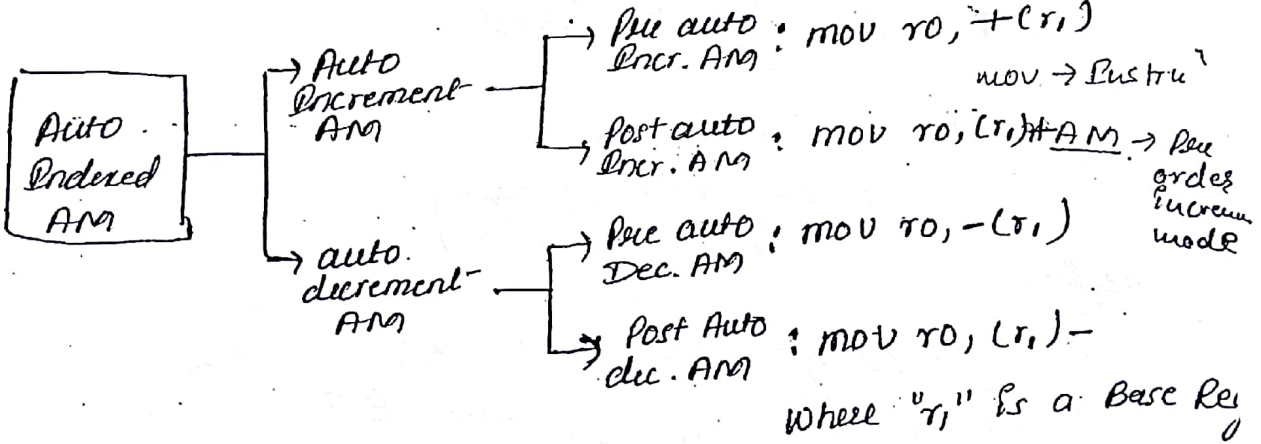 Auto
Indexed
AM
Auto
Increment
AM
auto.
decrement
AM
Pre auto
Incr. AM : mov r0, +(r1)
mov → Instru
Post auto
Incr. AM : mov r0, (r1)+
AM → Pre
order
increm
mode
Pre auto
Dec. AM : mov r0, -(r1)
Post Auto
dec. AM : mov r0, (r1)-
Where "r1" is a Base Reg